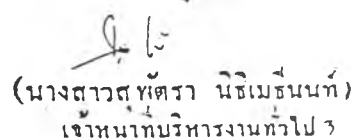 (นางสาวสุพัตรา นิธิเมธีนนท์)
เจ้าหน้าที่บริหารงานทั่วไป 3